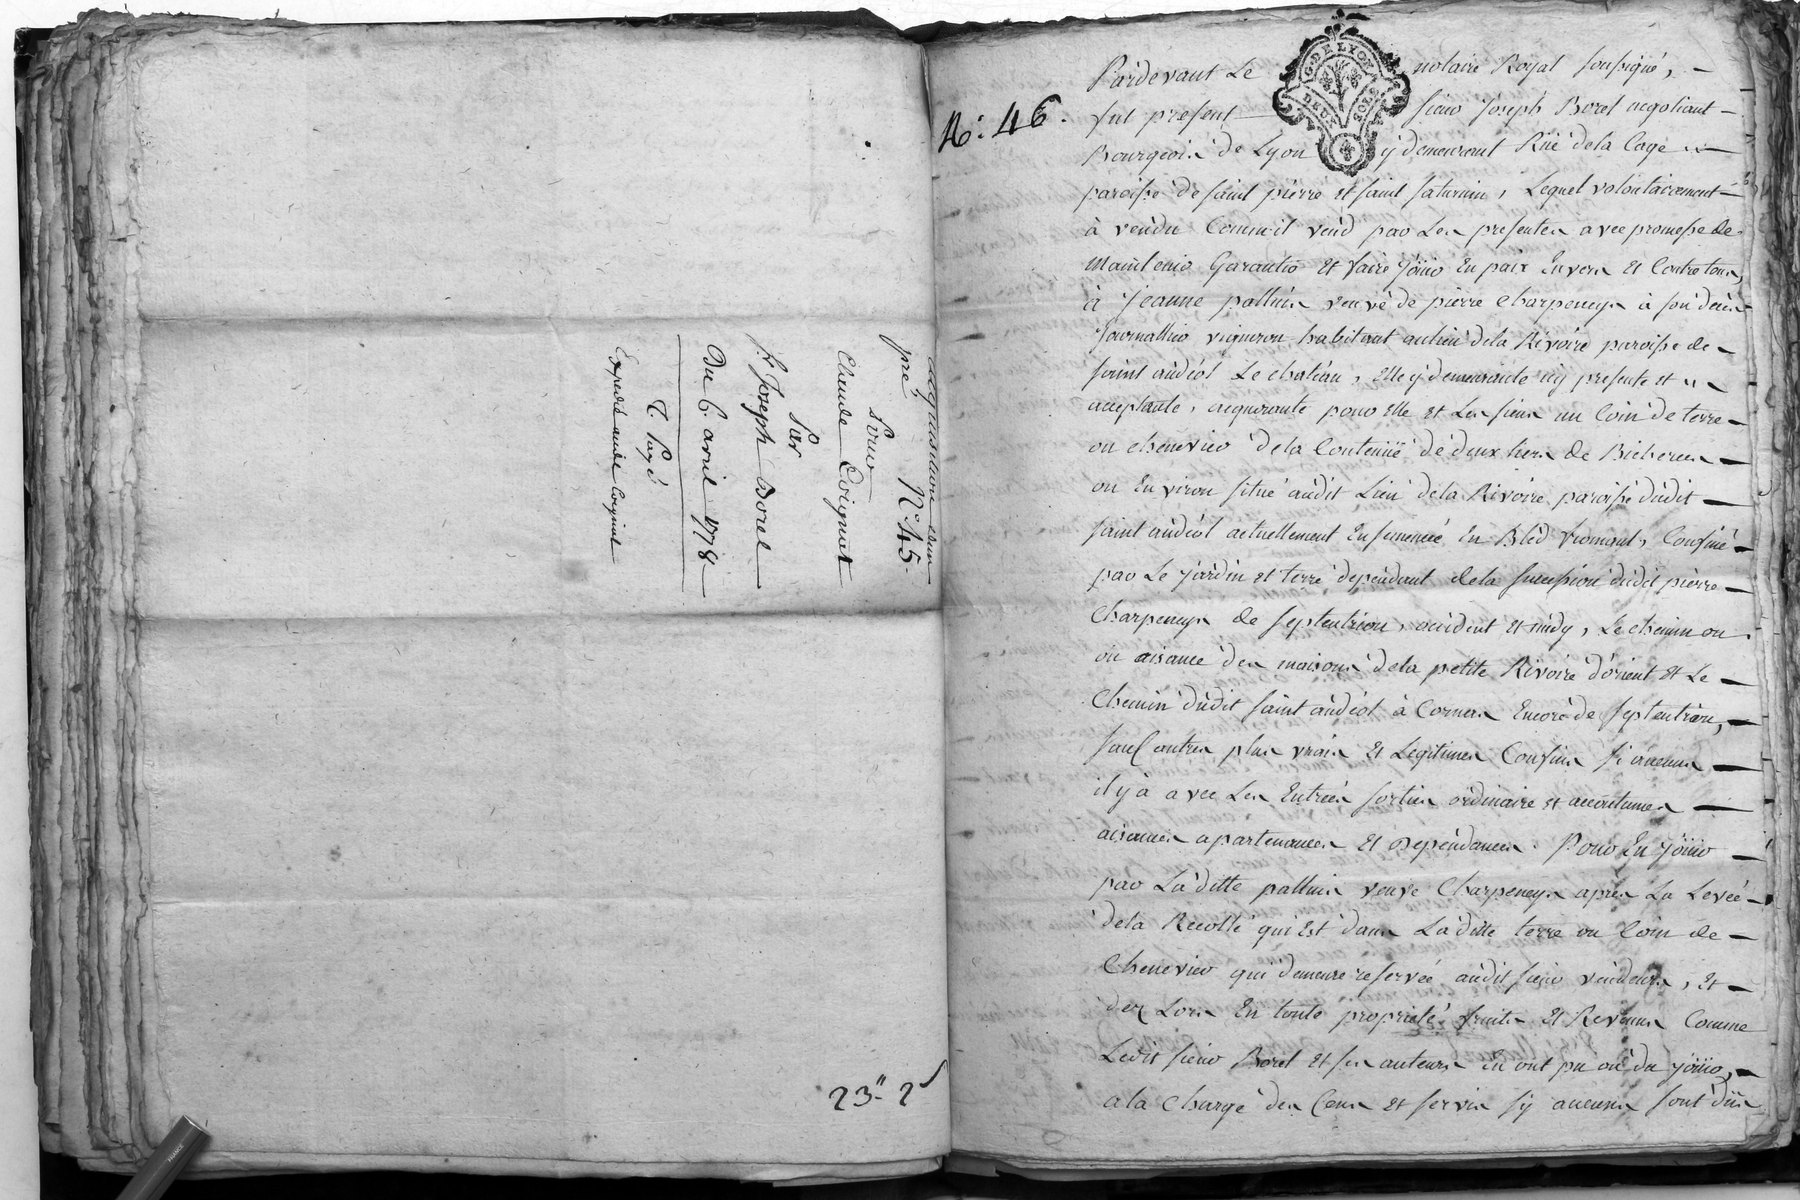 acquisition d'un
pré N.° 45.
Pour
Claude Coignet
Par
S.r Joseph Borel
Du 6. avril 1778
C. Payé
Expedié audit Coignet
23.ll 2s
N.° 46.
G. DE LYON
DEUX SOLS
Pardevant Le notaire Royal soussigné,
fut present sieur Joseph Borel negotiant
Bourgeois de Lyon y demeurant Rüe dela Cage
paroisse de saint pierre et saint saturnin, Lequel volontairement
à vendu Comm'il vend par Les presentes avec promesse de
maintenir Garantir et faire joüir En paix Envers et Contre tous,
à Jeanne palluis veuve de pierre Charpeneys à son deces
Journallier vigneron habitant au lieu dela Rivoire paroisse de
saint andéol Le chatéau, Elle y demeurante icy presente et
acceptante, acquerante pour Elle et Les siens un Coin de terre
ou chenevier dela Contenüe de deux tiers de Bicherée
ou Environ situé audit Lieu dela Rivoire paroisse dudit
saint andéol actuellement Ensemencé En Bled froment, Confiné
par Le jardin et terre dependant dela succession dudit pierre
Charpeneys de septentrion, occident et midy, Le chemin ou
ou aisance des maisons dela petite Rivoire d'orient et Le
Chemin dudit saint andéol à Cornas Encore de septentrion,
sauf autres plus vrais et Legitimes Confins si aucuns
il y à avec Les Entrées sorties ordinaire et accoutumés
aisances apartenances et Dependances. Pour En joüir
par Laditte palluis veuve Charpeneys apres La Levée
dela Recolte qui Est dans Laditte terre ou Coin de
Chenevier qui demeure reservée audit sieur vendeur, et
dez Lors En toute proprieté fruits et Revenus Comme
Ledit sieur Borel et ses auteurs En ont pu ou du joüir,
a la Charge des Cens et servis sy aucuns sont dûs